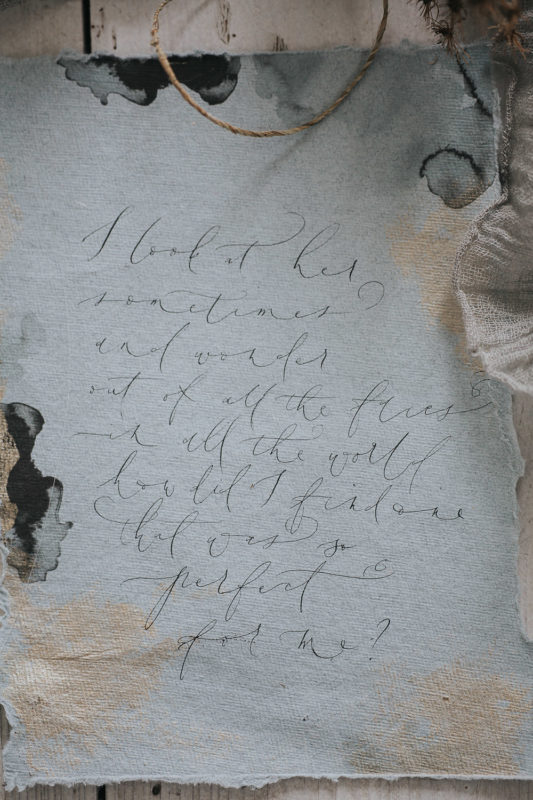 I look at her
sometimes
and wonder
out of all the
in all the world
how did I find one
that was so
perfect
for me?